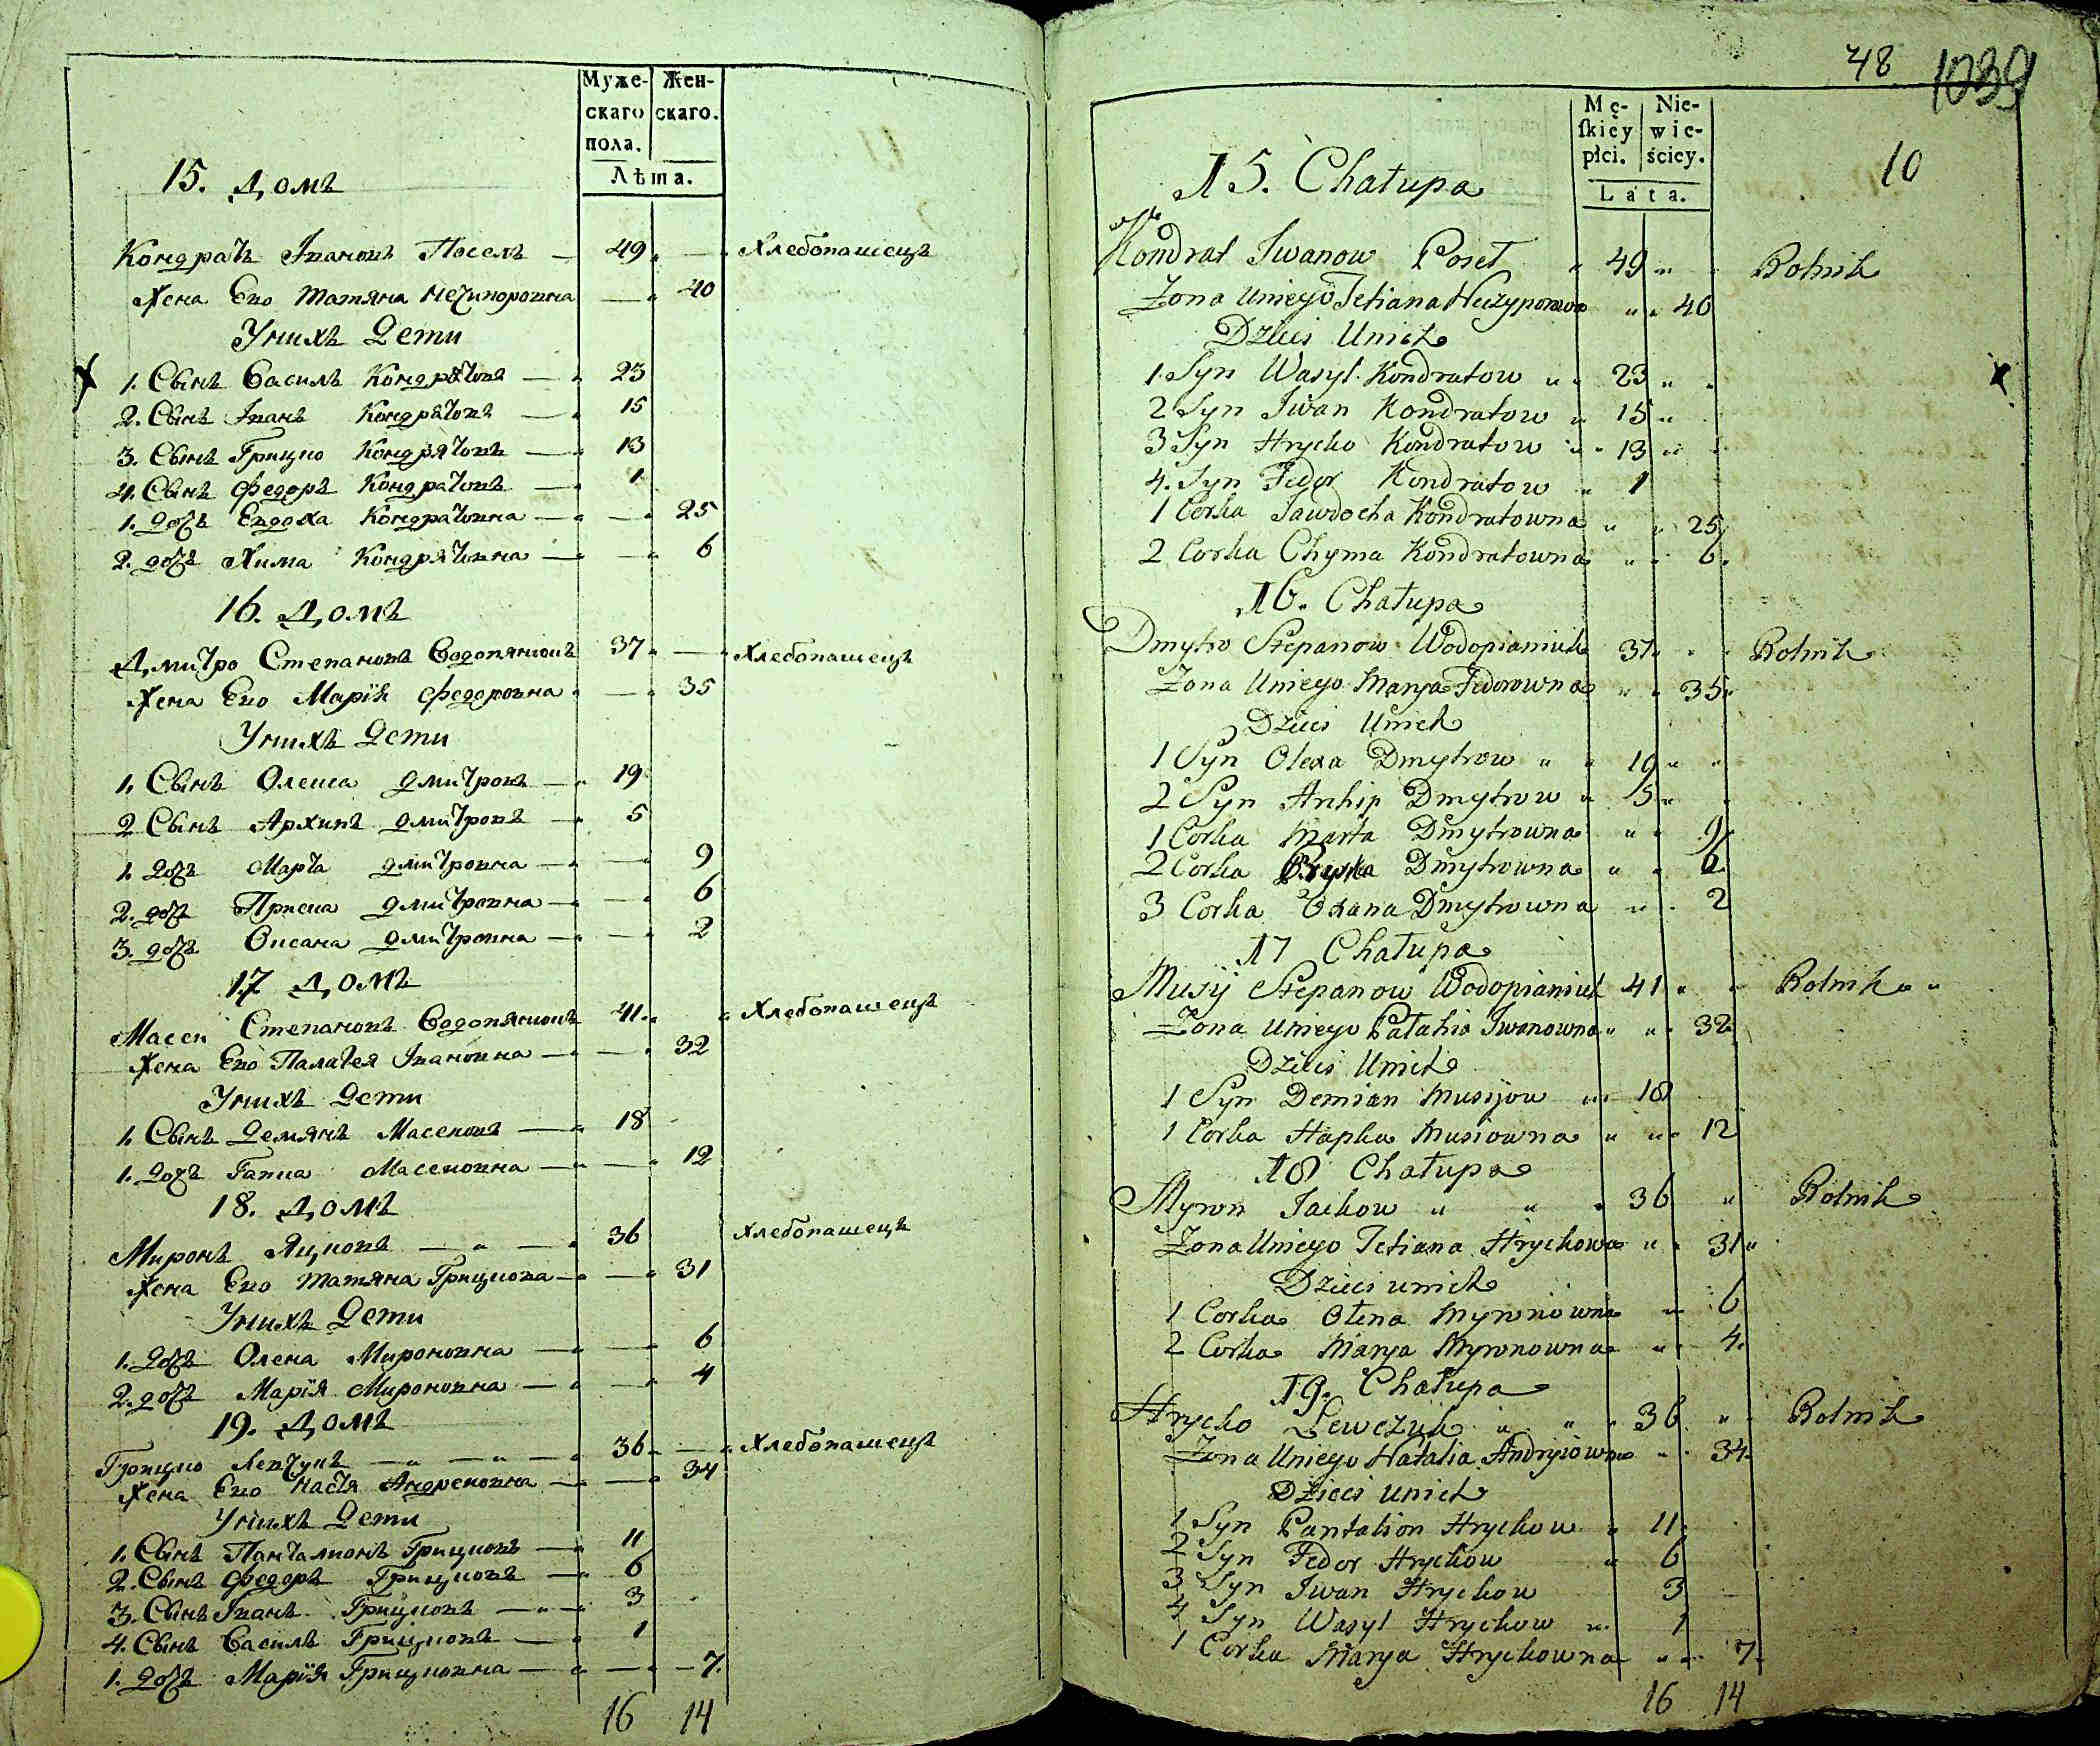 Муже-
скаго
пола.
Жен-
скаго.
Лѣта.
15. Домъ
Кондратъ Івановъ Поселъ — 49 — Хлебопашецъ
Жена Его Татяна Нечипоровна — 40
Унихъ Дети
1. Сынъ Василъ Кондратовъ — 23
2. Сынъ Іванъ Кондратовъ — 15
3. Сынъ Грицко Кондратовъ — 13
4. Сынъ Федоръ Кондратовъ — 1
1. Дочъ Евдоха Кондратовна — — 25
2. дочъ Хима Кондратовна — — 6
16. Домъ
Дмитро Степановъ Водопянюкъ 37 — Хлебопашецъ
Жена Его Марія Федоровна — 35
Унихъ Дети
1. Сынъ Олекса Дмитровъ — 19
2 Сынъ Архипъ Дмитровъ — 5
1. Дочъ Марта Дмитровна — — 9
2. дочъ Приска Дмитровна — — 6
3. дочъ Оксана Дмитровна — — 2
17 Домъ
Масей Степановъ Водопянюкъ 41. Хлебопашецъ
Жена Его Палагея Івановна — — 32
Унихъ Дети
1. Сынъ Демянъ Масеювъ — 18
1. Дочъ Гапка Масеювна — — 12
18. Домъ
Миронъ Яцковъ — " — 36 Хлебопашецъ
Жена Его Татяна Грицкова — — 31
Унихъ Дети
1. Дочъ Олена Мироновна — — 6
2. дочъ Марія Мироновна — — 4
19. Домъ
Грицко Левчукъ — " — " — 36 — Хлебопашецъ
Жена Его Настя Андреювна — — 34
Унихъ Дети
1. Сынъ Панталионъ Грицковъ — 11
2. Сынъ Федоръ Грицковъ — 6
3. Сынъ Іванъ Грицковъ — " — 3
4. Сынъ Василъ Грицковъ — 1
1. Дочъ Марія Грицковна — — 7.
16 14
48 1039
10
Mę-
skiey
płci.
Nie-
wie-
ściey.
Lata.
15. Chałupa
Kondrat Iwanow Poseł " 49 " " Rolnik
Żona Uniego Tetiana Neczyporowa " " 40
Dzieci Unich
1. Syn Wasyl Kondratow " " 23 " "
2 Syn Iwan Kondratow " 15 "
3 Syn Hrycko Kondratow " " 13 " "
4. Syn Fedor Kondratow " 1
1 Corka Jawdocha Kondratowna " " 25
2 Corka Chyma Kondratowna " " 6.
16. Chałupa
Dmytro Stepanow Wodopianiuk 37 " " Rolnik
Żona Uniego Marya Fedorowna " " 35
Dzieci Unich
1 Syn Olexa Dmytrow " " 19 " "
2 Syn Arhip Dmytrow " 5 "
1 Corka Marta Dmytrowna " " 9
2 Corka Pryska Dmytrowna " " 6
3 Corka Oxana Dmytrowna " " 2
17 Chałupa
Musij Stepanow Wodopianiuk 41 " " Rolnik " "
Żona Uniego Pałahia Iwanowna " " 32
Dzieci Unich
1 Syn Demian Musijow " " 18
1 Corka Hapka Musiowna " " " 12
18 Chałupa
Myron Jackow " " " 36 " Rolnik
Żona Uniego Tetiana Hryckowa " " 31 "
Dzieci unich
1 Corka Ołena Myronowna " 6
2 Corka Marya Myronowna " " 4.
19. Chałupa
Hrycko Lewczuk " " " 36 " Rolnik
Żona Uniego Natalia Andryiowna " " 34
Dzieci unich
1 Syn Pantalion Hryckow " 11
2 Syn Fedor Hryckow " 6
3 Syn Iwan Hryckow 3
4 Syn Wasyl Hryckow " 1
1 Corka Marya Hryckowna " " 7
16 14